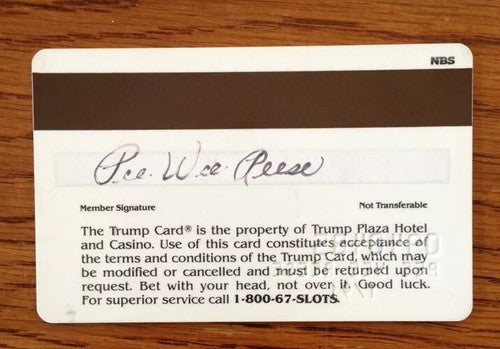 NBS
Pee Wee Reese
Member Signature
Not Transferable
The Trump Card® is the property of Trump Plaza Hotel
and Casino. Use of this card constitutes acceptance of
the terms and conditions of the Trump Card, which may
be modified or cancelled and must be returned upon
request. Bet with your head, not over it. Good luck.
For superior service call 1-800-67-SLOTS.